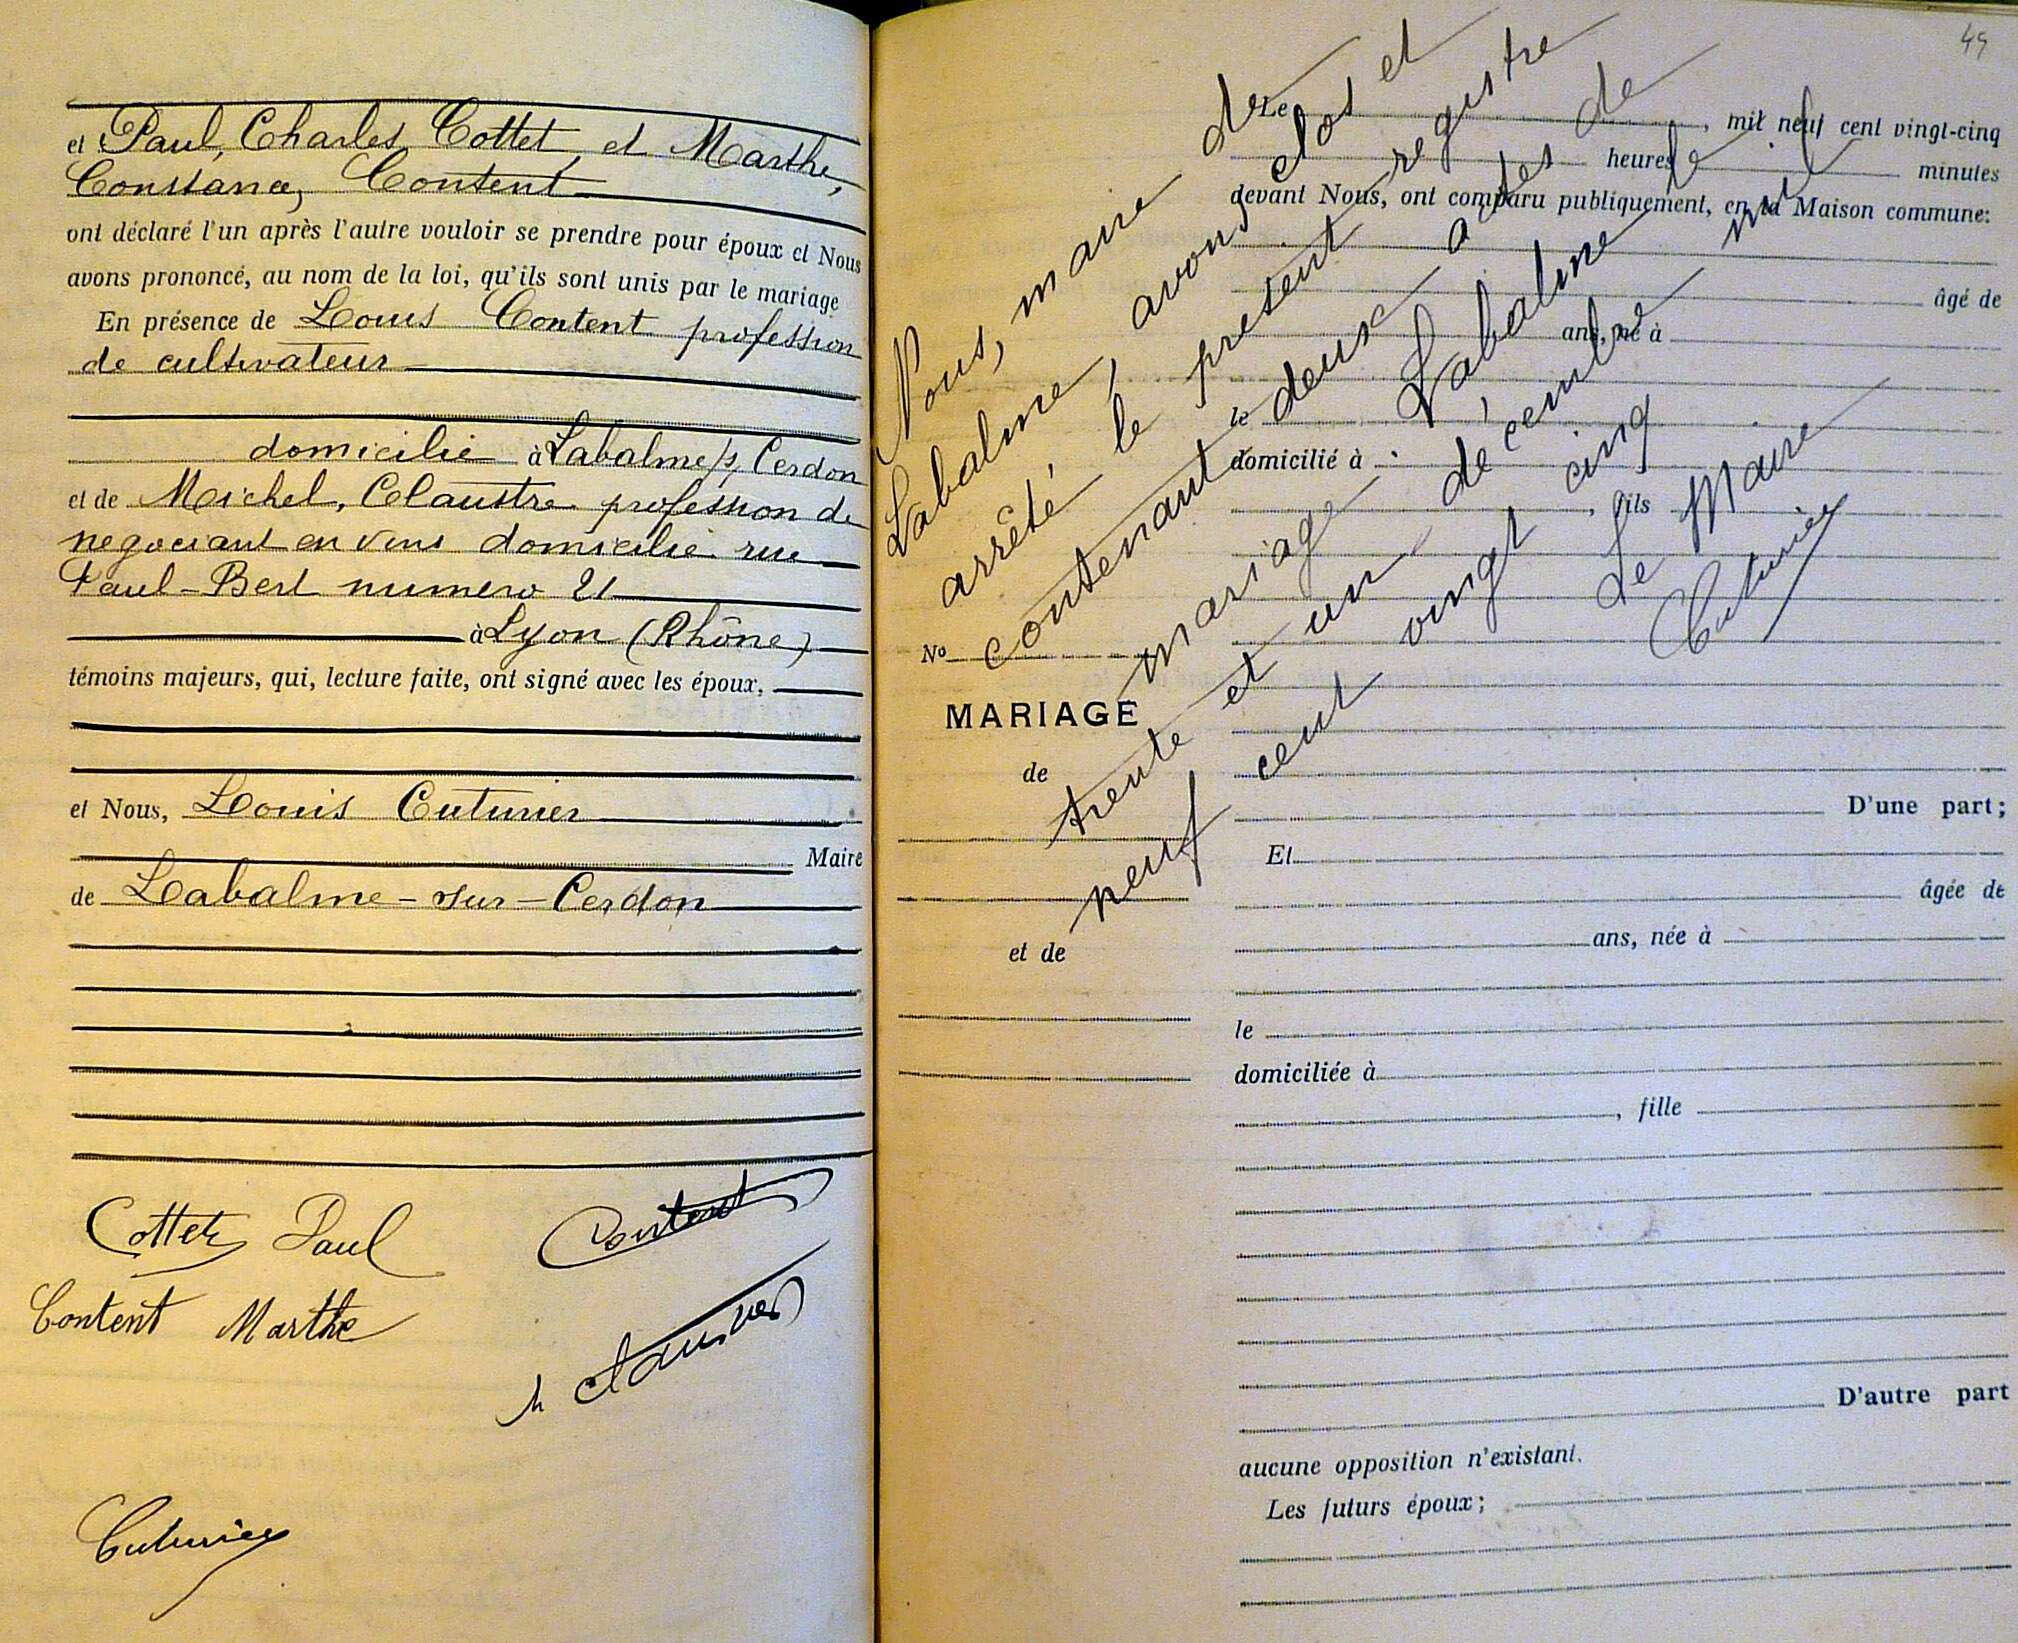 et Paul, Charles, Cottet, et Marthe,
Constance, Content
ont déclaré l'un après l'autre vouloir se prendre pour époux et Nous
avons prononcé, au nom de la loi, qu'ils sont unis par le mariage
En présence de Louis Content profession
de cultivateur
domicilié à Labalme s/ Cerdon
et de Michel, Claustre profession de
negociant en vins domicilié rue
Paul-Bert numero 21
à Lyon (Rhône)
témoins majeurs, qui, lecture faite, ont signé avec les époux,
et Nous, Louis Cuturier
Maire
de Labalme-sur-Cerdon
Cottet Paul
Content
Content Marthe
Cuturier
49
Nous, maire de
Labalme, avons clos et
arrêté le présent registre
contenant deux actes de
mariage. Labalme le
trente et un décembre mil
neuf cent vingt cinq
Le Maire
Cuturier
Le , mil neuf cent vingt-cinq
heures minutes
devant Nous, ont comparu publiquement, en la Maison commune:
âgé de
ans, né à
le
domicilié à
, fils
No
MARIAGE
de
et de
D'une part;
Et
âgée de
ans, née à
le
domiciliée à
, fille
D'autre part
aucune opposition n'existant.
Les futurs époux;